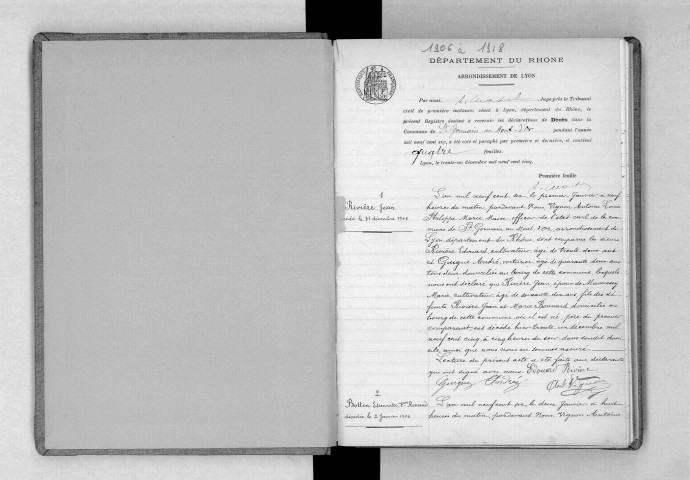 1906 à 1918
DÉPARTEMENT DU RHONE
ARRONDISSEMENT DE LYON
Par nous, Juge près le Tribunal
civil de première instance, séant à Lyon, département du Rhône, le
présent Registre destiné à recevoir les déclarations de Décès dans la
Commune de St Germain au Mont-d'Or pendant l'année
mil neuf cent six, a été coté et paraphé par première et dernière, et contient
quatre feuilles.
Lyon, le trente-un décembre mil neuf cent cinq.
Première feuille
1
Rivière Jean
décédé le 31 décembre 1905
L'an mil neuf cent six le premier Janvier à neuf
heures du matin, pardevant Nous Vignon Antoine Louis
Philippe Marie Maire officier de l'état civil de la com-
mune de St Germain au Mont d'or, arrondissement de
Lyon département du Rhône, sont comparus les sieurs
Rivière Edouard, cultivateur, âgé de trente deux ans
et Guigue André, voiturier, âgé de quarante deux ans
tous deux domiciliés au bourg de cette commune, lesquels
nous ont déclaré que Rivière Jean, époux de
Marie, cultivateur, âgé de soixante dix ans, fils des dé-
funts Rivière Jean et Marie Bonnard domicilié au
bourg de cette commune où il est né, père du premier
comparant, est décédé hier trente un décembre mil
neuf cent cinq, à cinq heures du soir, dans son dit domi-
cile, ainsi que nous nous en sommes assuré.
Lecture du présent acte a été faite aux déclarants
qui ont signé avec nous. Edouard Rivière
Guigue André
Vignon
2
décédée le 2 Janvier 1906
L'an mil neuf cent six, le deux Janvier à huit
heures du matin, pardevant Nous Vignon Antoine